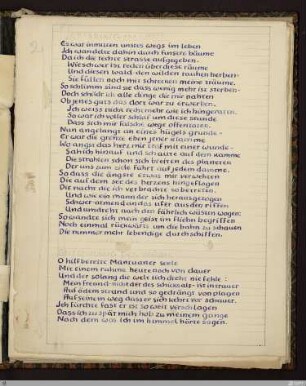 Es war inmitten unsres wegs im leben
Ich wandelte dahin durch finstre bäume
Da ich die rechte strasse aufgegeben.
Wie schwer ist reden über diese räume
Und diesen wald · den wilden rauhen herben..
Sie füllen noch mit schrecken meine träume.
So schlimm sind sie dass wenig mehr ist sterben.
Doch schildr ich alle dinge die mir nahten
Ob jenes guts das dort war zu erwerben.
Ich weiss nicht recht mehr wie ich hingeraten
So war ich voller schlaf um diese stunde
Dass sich mir falsche wege offentaten.
Nun angelangt an eines hügels grunde
Er war die grenze eben jener klamme
Wo angst das herz mir traf mit einer wunde:
Sah ich hinauf und ich
Die strahlen schon sich breiten des planeten
Der uns zum ziele führt auf jedem damme.
So dass die ängste etwas mir verwehten
Die auf dem see des herzens
Die nacht die ich verbracht in
Und wie ein mann der sich herausgezogen
Schwer atmend aus der
Und umdreht nach den fährlich wüsten wogen:
So wandte sich mein geist im fliehn begriffen
Noch einmal rückwärts um die bahn zu schauen
Die nimmermehr lebendige durchschiffen.
O hilfbereite Mantuaner seele
Mit einem ruhme heute noch von dauer
Und der solang die welt sich dreht nie fehle:
Mein freund · nicht der des schicksals · ist in trauer
Auf ödem strand und so gedrängt von plagen
Auf seinem weg dass er sich kehrt vor schauer.
Ich fürchte fast er ist so weit verschlagen
Dass ich zu spät mich hob zu meinem gange
Nach dem was ich im himmel hörte sagen.